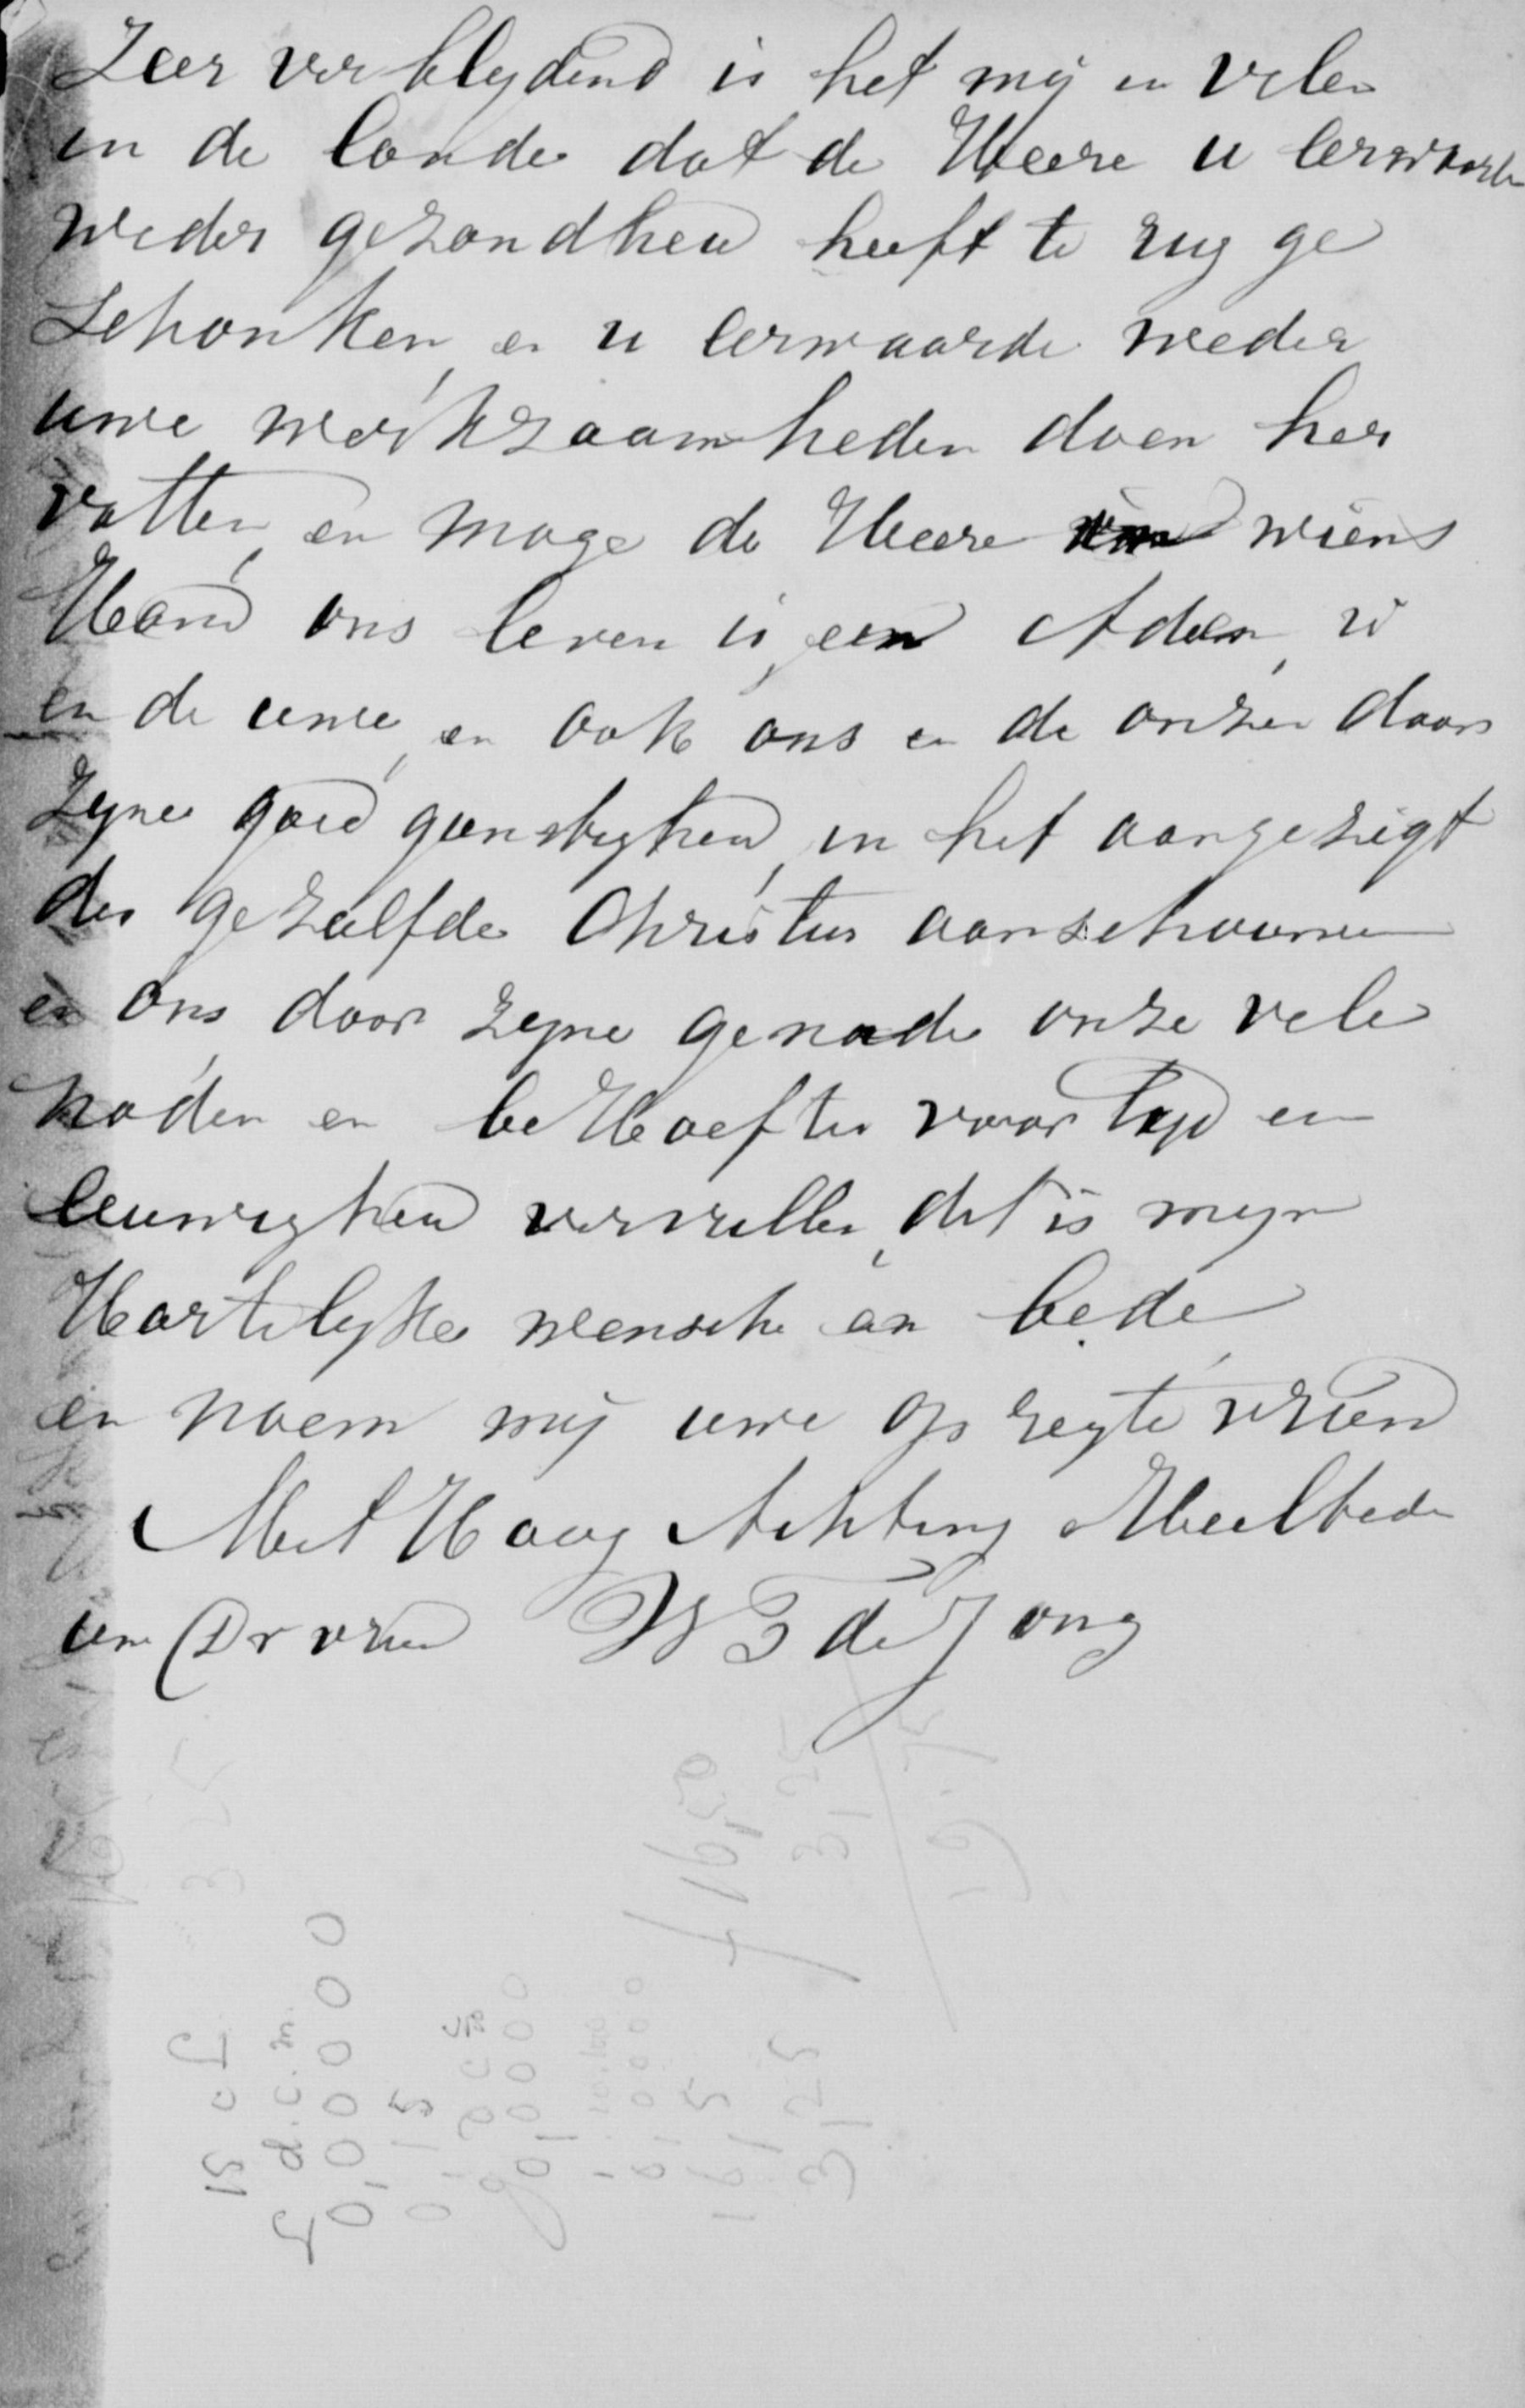 Zeer ver blydend is het mij en velen
in de lande dat de Heere u Eerwaarde
weder gezondheid heeft te rug ge
schonken, en u Eerwaarde weder
uwe werkzaamheden doen her
vatten, en moge de Heere in wiens
Hand ons leven is, een Adem, u
en de uwe, en ook ons en de onzen door
zyne goed gunstigheid, in het aangezigt
des gezalfde Christus aanschouwen
en ons, door zyne genade onze vele
noden en be Hoefte voor tyd en
eeuwigheid vervullen, dit is myn
Hartelyke wensch en bede,
en noem mij uwe op regte vriend
Met Hoog Achting Heilbede
uw Dr vriend W B de Jong